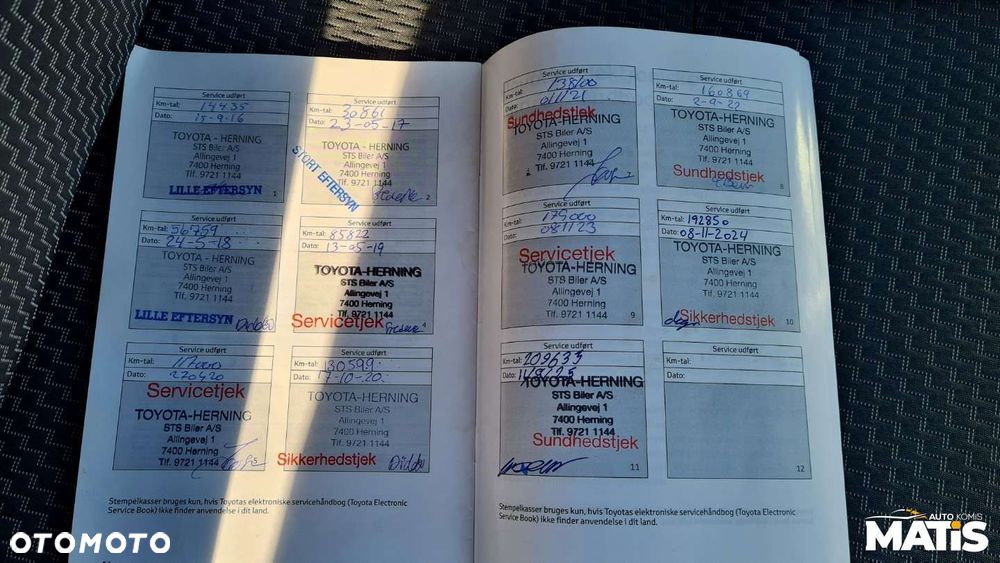 Service udført
Km-tal: 14435
Dato: 15-9-16
TOYOTA - HERNING
STS Biler A/S
Allingevej 1
7400 Herning
Tlf. 9721 1144
LILLE EFTERSYN
1
Service udført
Km-tal: 30861
Dato: 23-05-17
TOYOTA - HERNING
STS Biler A/S
Allingevej 1
7400 Herning
Tlf. 9721 1144
STORT EFTERSYN
2
Service udført
Km-tal: 56759
Dato: 24-5-18
TOYOTA - HERNING
STS Biler A/S
Allingevej 1
7400 Herning
Tlf. 9721 1144
LILLE EFTERSYN
Service udført
Km-tal: 85822
Dato: 13-05-19
TOYOTA-HERNING
STS Biler A/S
Allingevej 1
7400 Herning
Tlf. 9721 1144
Servicetjek
4
Service udført
Km-tal: 117000
Dato: 270420
Servicetjek
TOYOTA-HERNING
STS Biler A/S
Allingevej 1
7400 Herning
Tlf. 9721 1144
5
Service udført
Km-tal: 130599
Dato: 17-10-20
TOYOTA-HERNING
STS Biler A/S
Allingevej 1
7400 Herning
Tlf. 9721 1144
Sikkerhedstjek
Stempelkasser bruges kun, hvis Toyotas elektroniske servicehåndbog (Toyota Electronic
Service Book) ikke finder anvendelse i dit land.
Service udført
Km-tal: 138100
Dato: 011121
Sundhedstjek
TOYOTA-HERNING
STS Biler A/S
Allingevej 1
7400 Herning
Tlf. 9721 1144
Service udført
Km-tal: 160869
Dato: 2-9-22
TOYOTA-HERNING
STS Biler A/S
Allingevej 1
7400 Herning
Tlf. 9721 1144
Sundhedstjek
8
Service udført
Km-tal: 175000
Dato: 081123
Servicetjek
TOYOTA-HERNING
STS Biler A/S
Allingevej 1
7400 Herning
Tlf. 9721 1144
9
Service udført
Km-tal: 192850
Dato: 08-11-2024
TOYOTA-HERNING
STS Biler A/S
Allingevej 1
7400 Herning
Tlf. 9721 1144
Sikkerhedstjek
10
Service udført
Km-tal: 209633
Dato:
TOYOTA-HERNING
STS Biler A/S
Allingevej 1
7400 Herning
Tlf. 9721 1144
Sundhedstjek
11
Service udført
Km-tal:
Dato:
12
Stempelkasser bruges kun, hvis Toyotas elektroniske servicehåndbog (Toyota Electronic
Service Book) ikke finder anvendelse i dit land.
OTOMOTO
AUTO KOMIS
MATIS